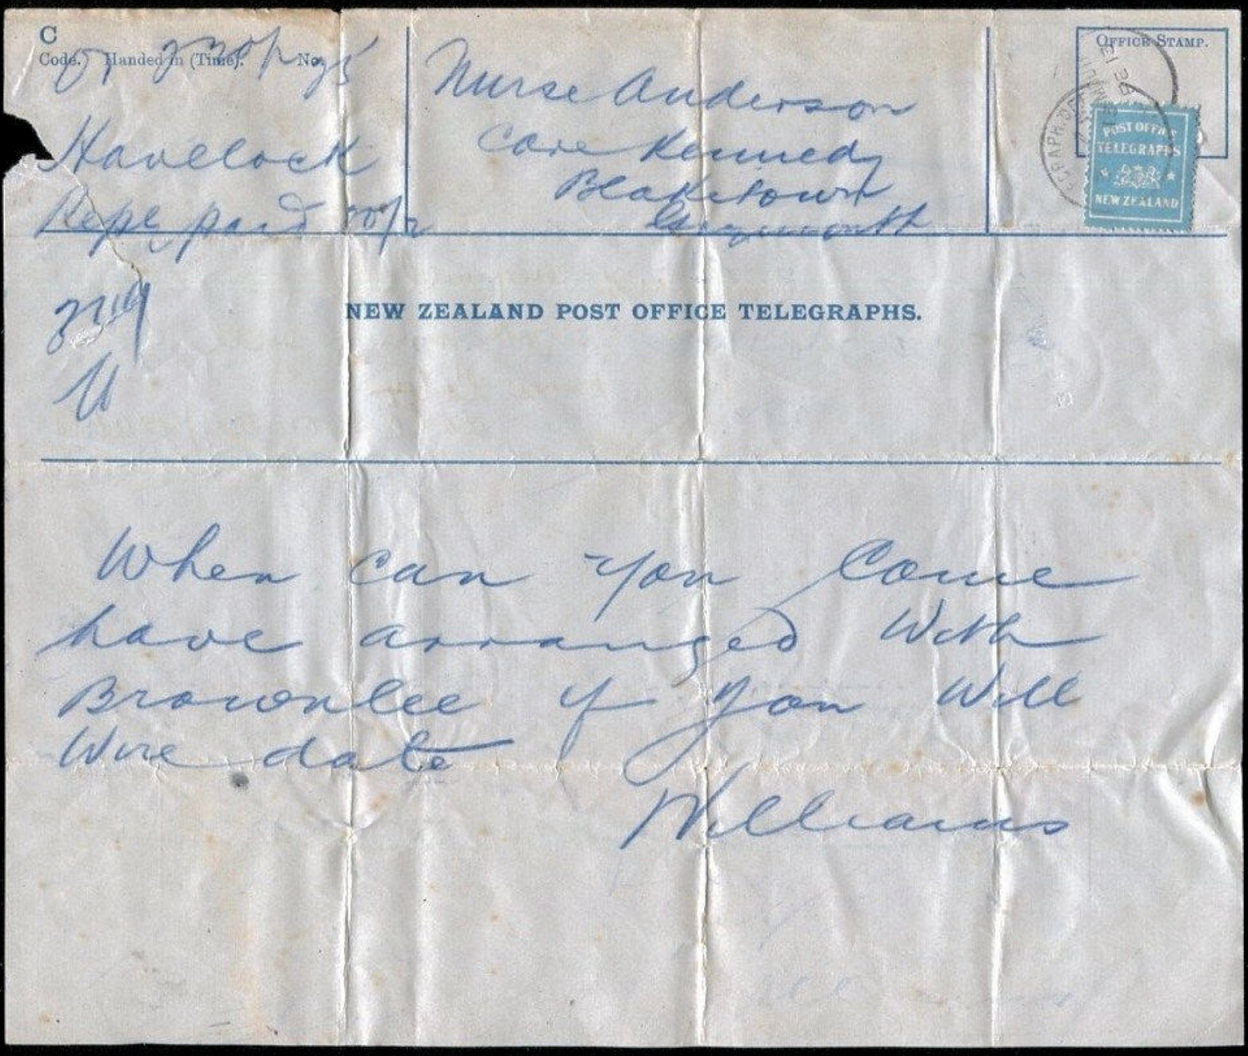 C
Code. Handed in (Time). No.
Havelock
Reply paid
Nurse Anderson
Care Kennedy
Blaketown
Greymouth
OFFICE STAMP.
POST OFFICE
TELEGRAPHS
NEW ZEALAND
NEW ZEALAND POST OFFICE TELEGRAPHS.
When can you Come
have arranged With
Brownlee if you Will
Wire date
Williams